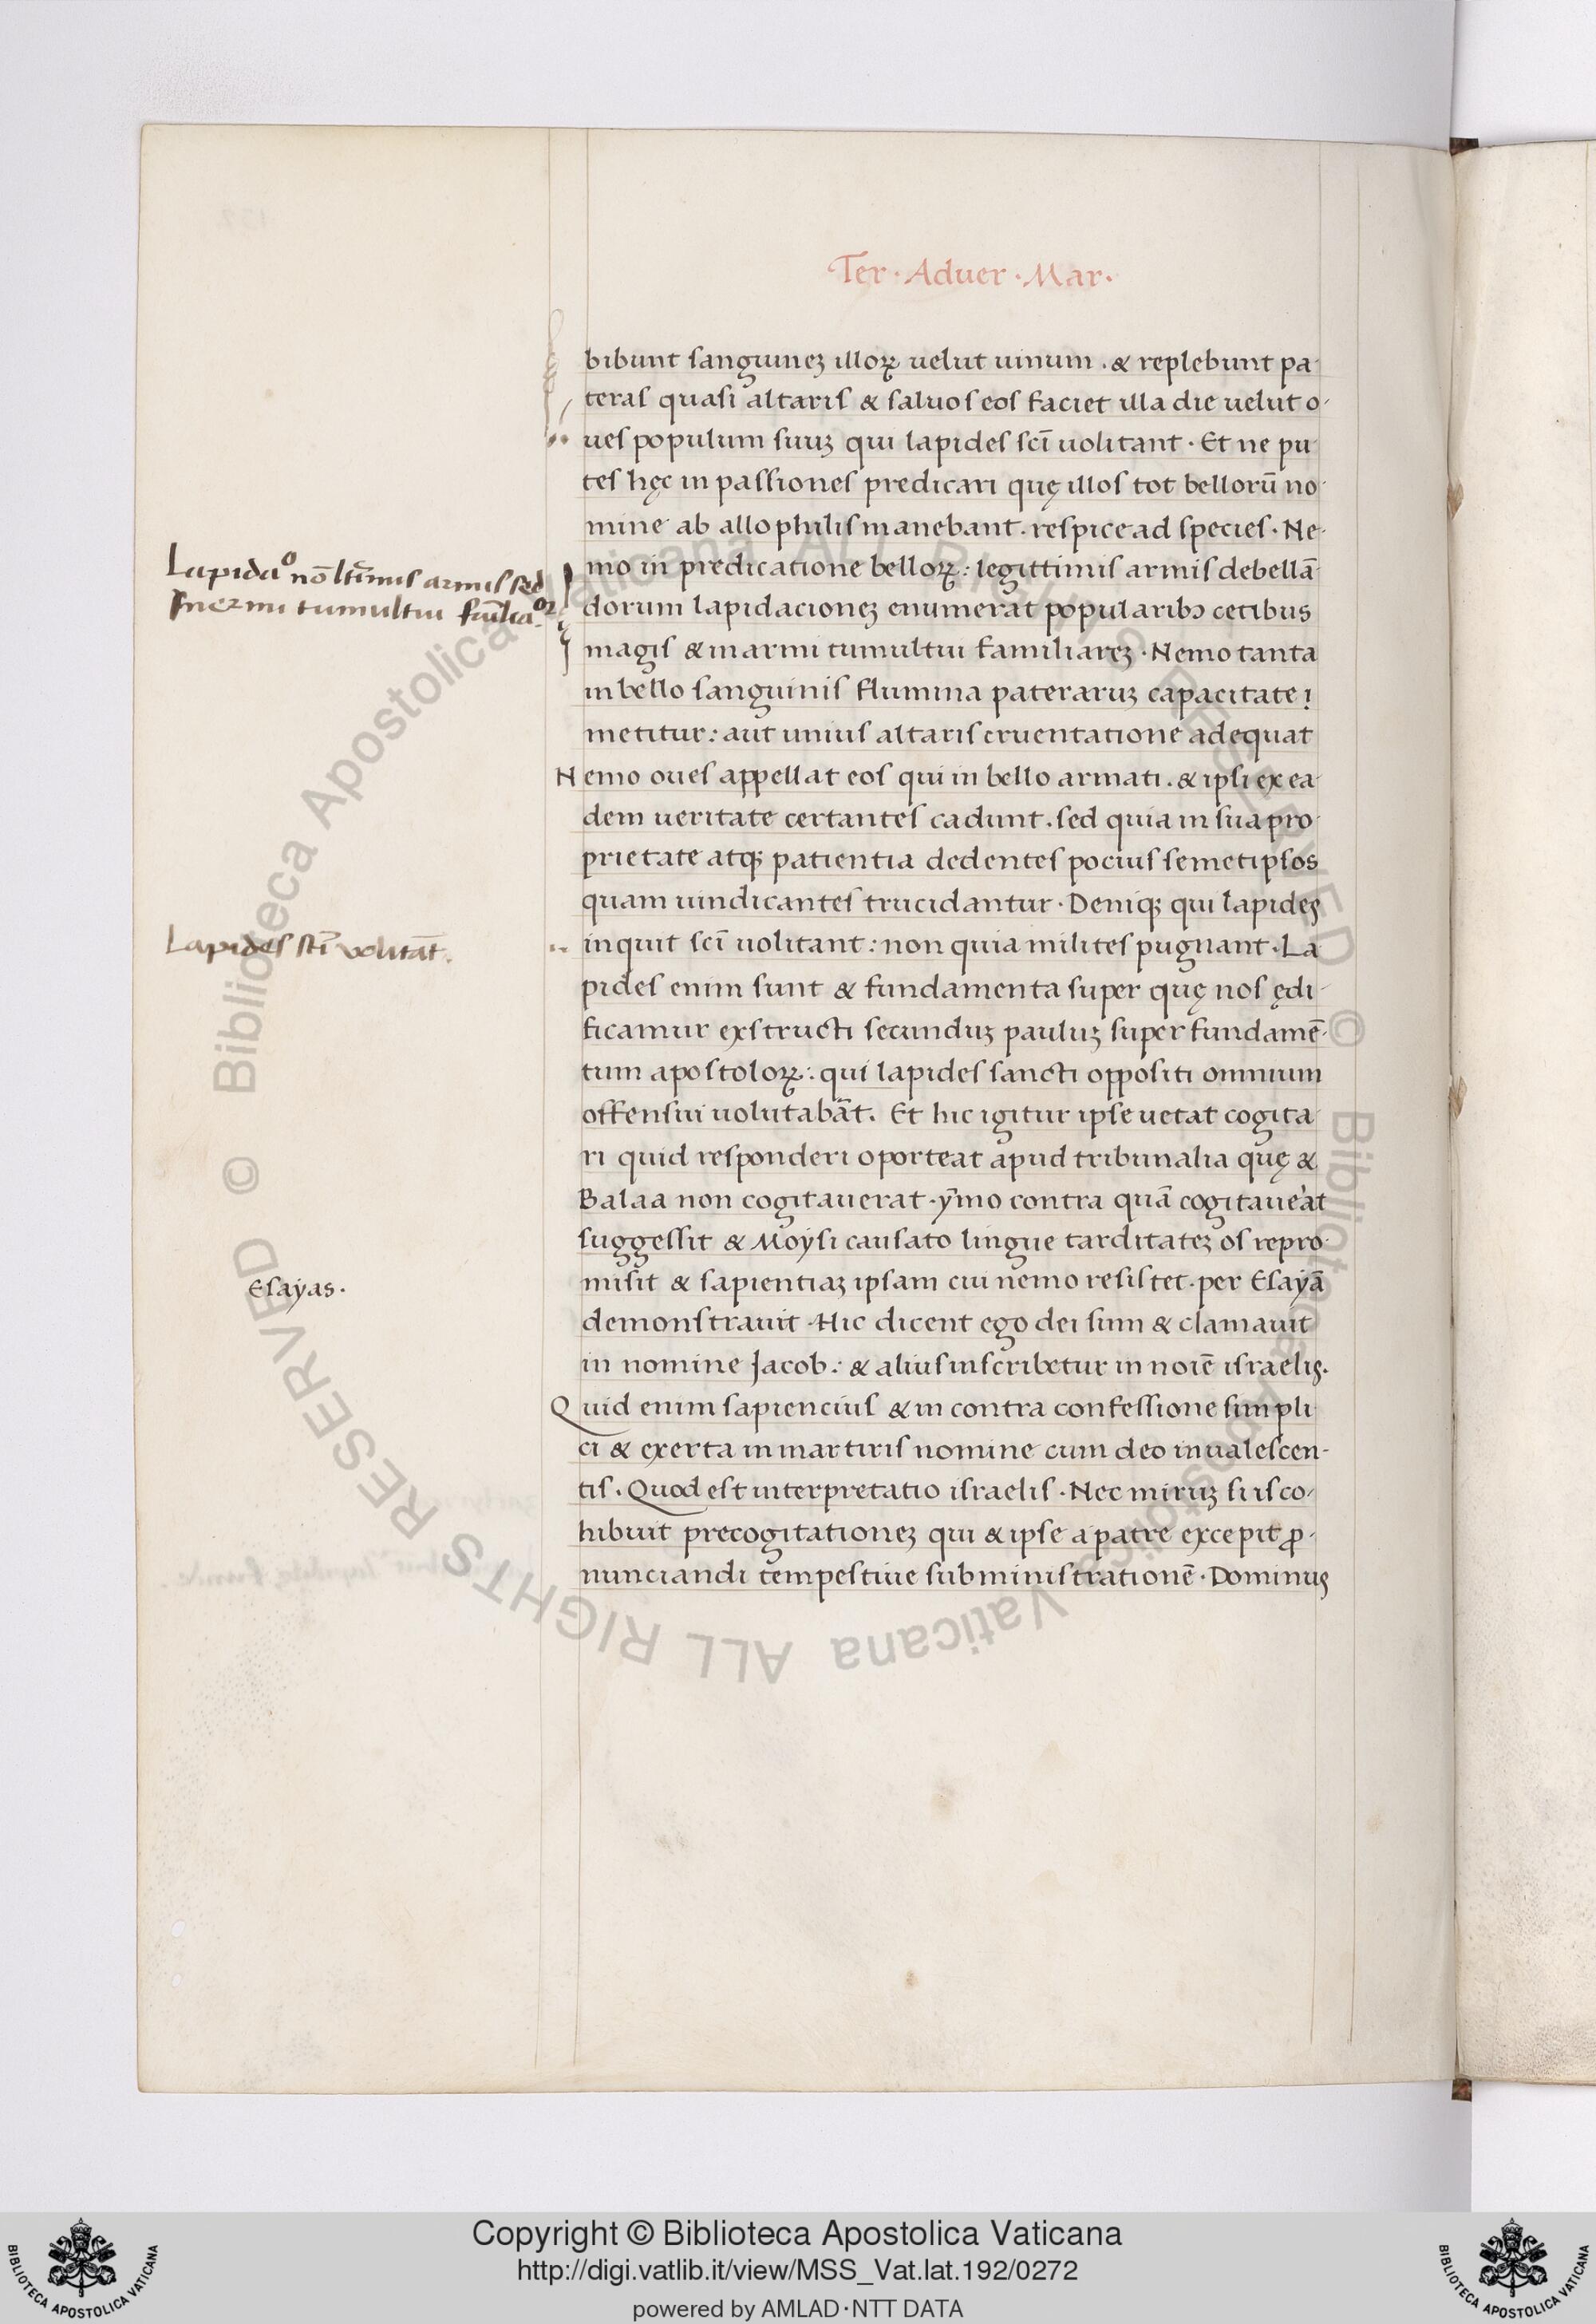 Ter · Aduer · Mar ·
bibunt sanguineꝫ illoꝝ uelut uinum . & replebunt pa-
teras quasi altaris & saluos eos faciet illa die uelut o-
ues populum suuꝫ qui lapides sc̄i uolitant · Et ne pu
tes hęc in passiones predicari quę illos tot bellorū no-
mine ab allophilis manebant . respice ad species · Ne-
mo in predicatione belloꝝ : legittimis armis debellā-
dorum lapidacioneꝫ enumerat popularibꝰ cetibus
magis & inarmi tumultui familiareꝫ · Nemo tanta
in bello sanguinis flumina pateraruꝫ capacitate
metitur : aut unius altaris cruentatione adequat
Nemo oues appellat eos qui in bello armati . & ipsi ex ea-
dem ueritate certantes cadunt . sed quia in sua pro-
prietate atqꝫ patientia dedentes pocius semetipsos
quam uindicantes trucidantur · Deniqꝫ qui lapides
inquit sc̄i uolitant : non quia milites pugnant . La
pides enim sunt & fundamenta super quę nos ędi-
ficamur exstructi secunduꝫ pauluꝫ super fundamē-
tum apostoloꝝ : qui lapides sancti oppositi omnium
offensui uolutabāt . Et hic igitur ipse uetat cogita-
ri quid responderi oporteat apud tribunalia quę &
Balaa non cogitauerat · ȳmo contra quā cogitaue'at
suggessit & Moysi causato lingue tarditateꝫ os repro-
misit & sapientiaꝫ ipsam cui nemo resistet . per Esayā
demonstrauit · Hic dicent ego dei sum & clamauit
in nomine Jacob : & alius inscribetur in noīe israelis .
Quid enim sapiencius & in contra confessione simpli
ci & exerta in martiris nomine cum deo inualescen-
tis . Quod est interpretatio israelis · Nec miruꝫ si is co-
hibuit precogitationeꝫ qui & ipse a patre excepit ꝓ-
nunciandi tempestiue subministrationē · Dominus
Lapidaº nō ltīmis armis sed
Inermi tumultui
Lapides sc̄i volitāt .
Esayas .
© Biblioteca Apostolica Vaticana ALL RIGHTS RESERVED © Biblioteca Apostolica Vaticana ALL RIGHTS RESERVED
Copyright © Biblioteca Apostolica Vaticana
http://digi.vatlib.it/view/MSS_Vat.lat.192/0272
powered by AMLAD·NTT DATA
BIBLIOTECA APOSTOLICA VATICANA
BIBLIOTECA APOSTOLICA VATICANA